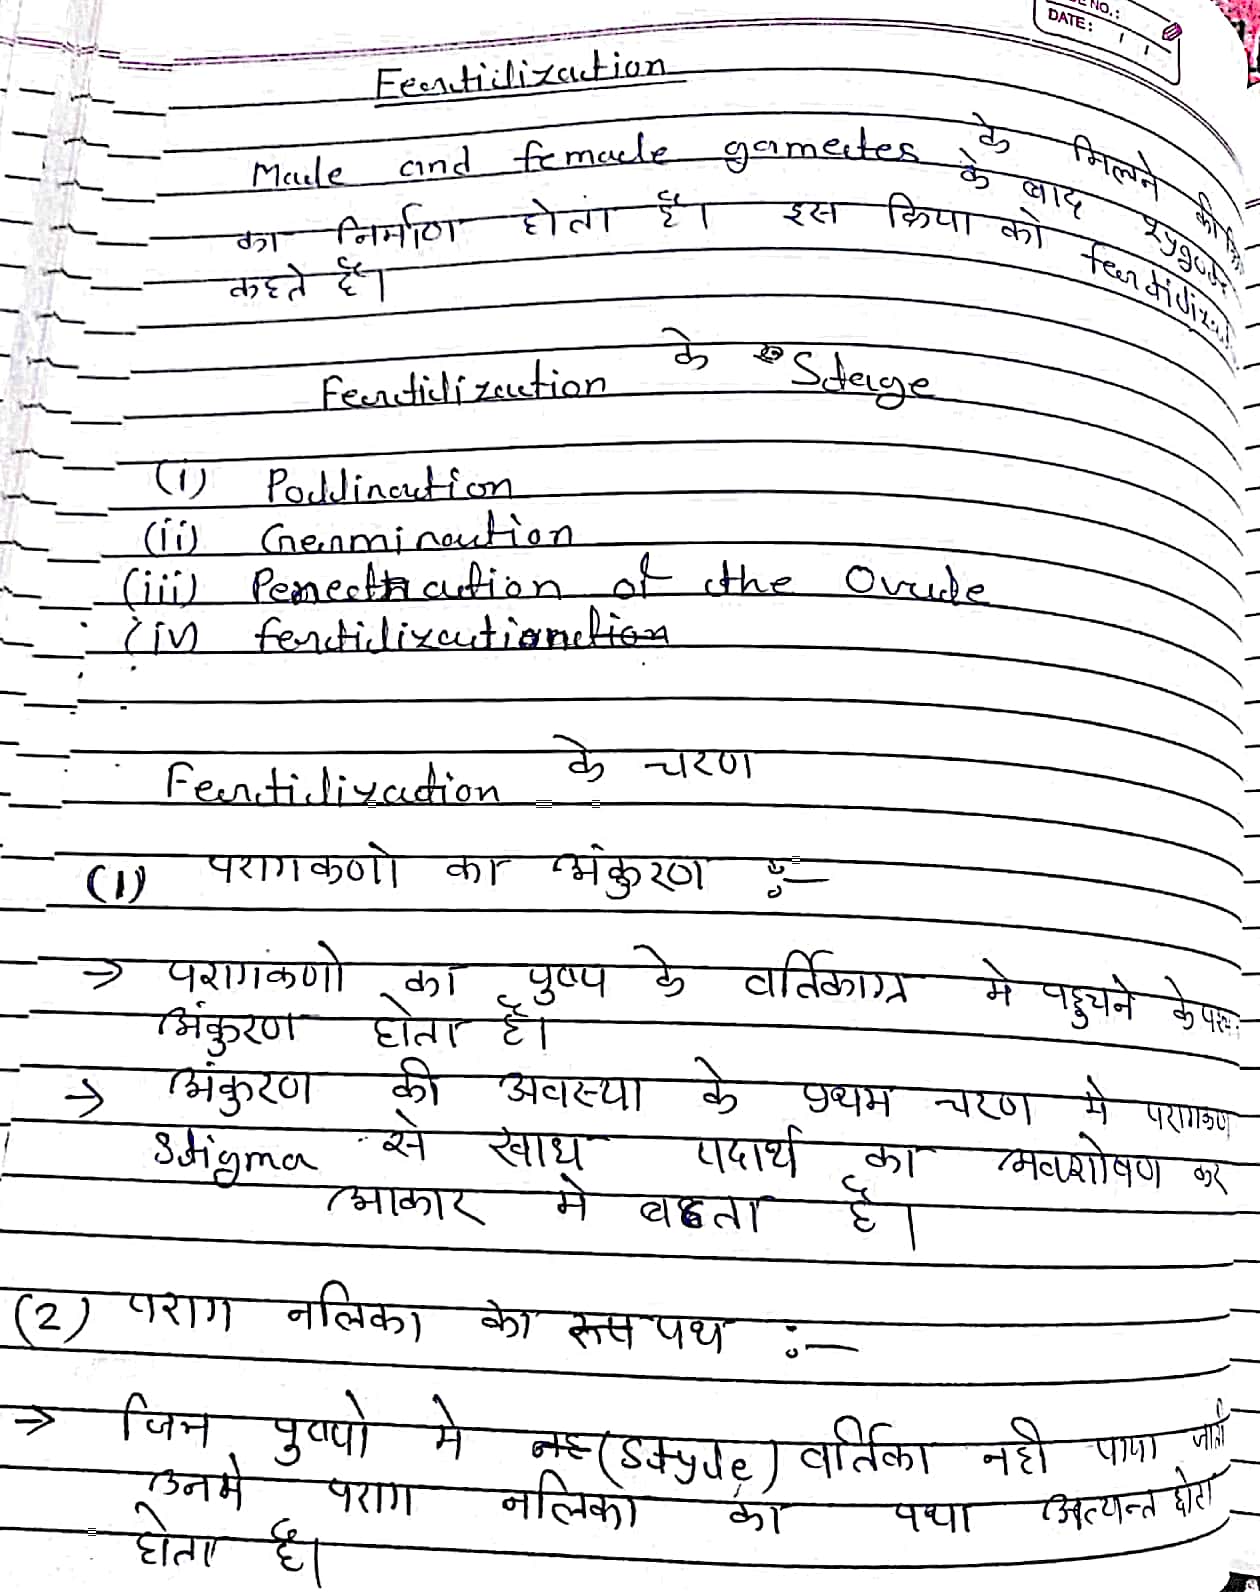 NO.:
DATE: / /
Fertilization
Male and female gametes के मिलने की
के बाद zygote
का निर्माण होता है। इस क्रिया को fertilizat
कहते है।
Fertilization के Stage
(i) Pollination
(ii) Germination
(iii) Penectration of the Ovule
(iv) fertilization
Fertilization के चरण
(1) परागकणो का अंकुरण :-
→ परागकणो का पुष्प के वर्तिकाग्र मे पहुचने के
अंकुरण होता है।
→ अंकुरण की अवस्था के प्रथम चरण मे परागकण
Stigma से खाध पदार्थ का अवशोषण कर
आकार मे बढता है।
(2) पराग नलिका का पथ :-
→ जिन पुष्पो मे (Style) वर्तिका नही पाया जाता
उनमे पराग नलिका का पथा अत्यन्त छोटा
होता है।